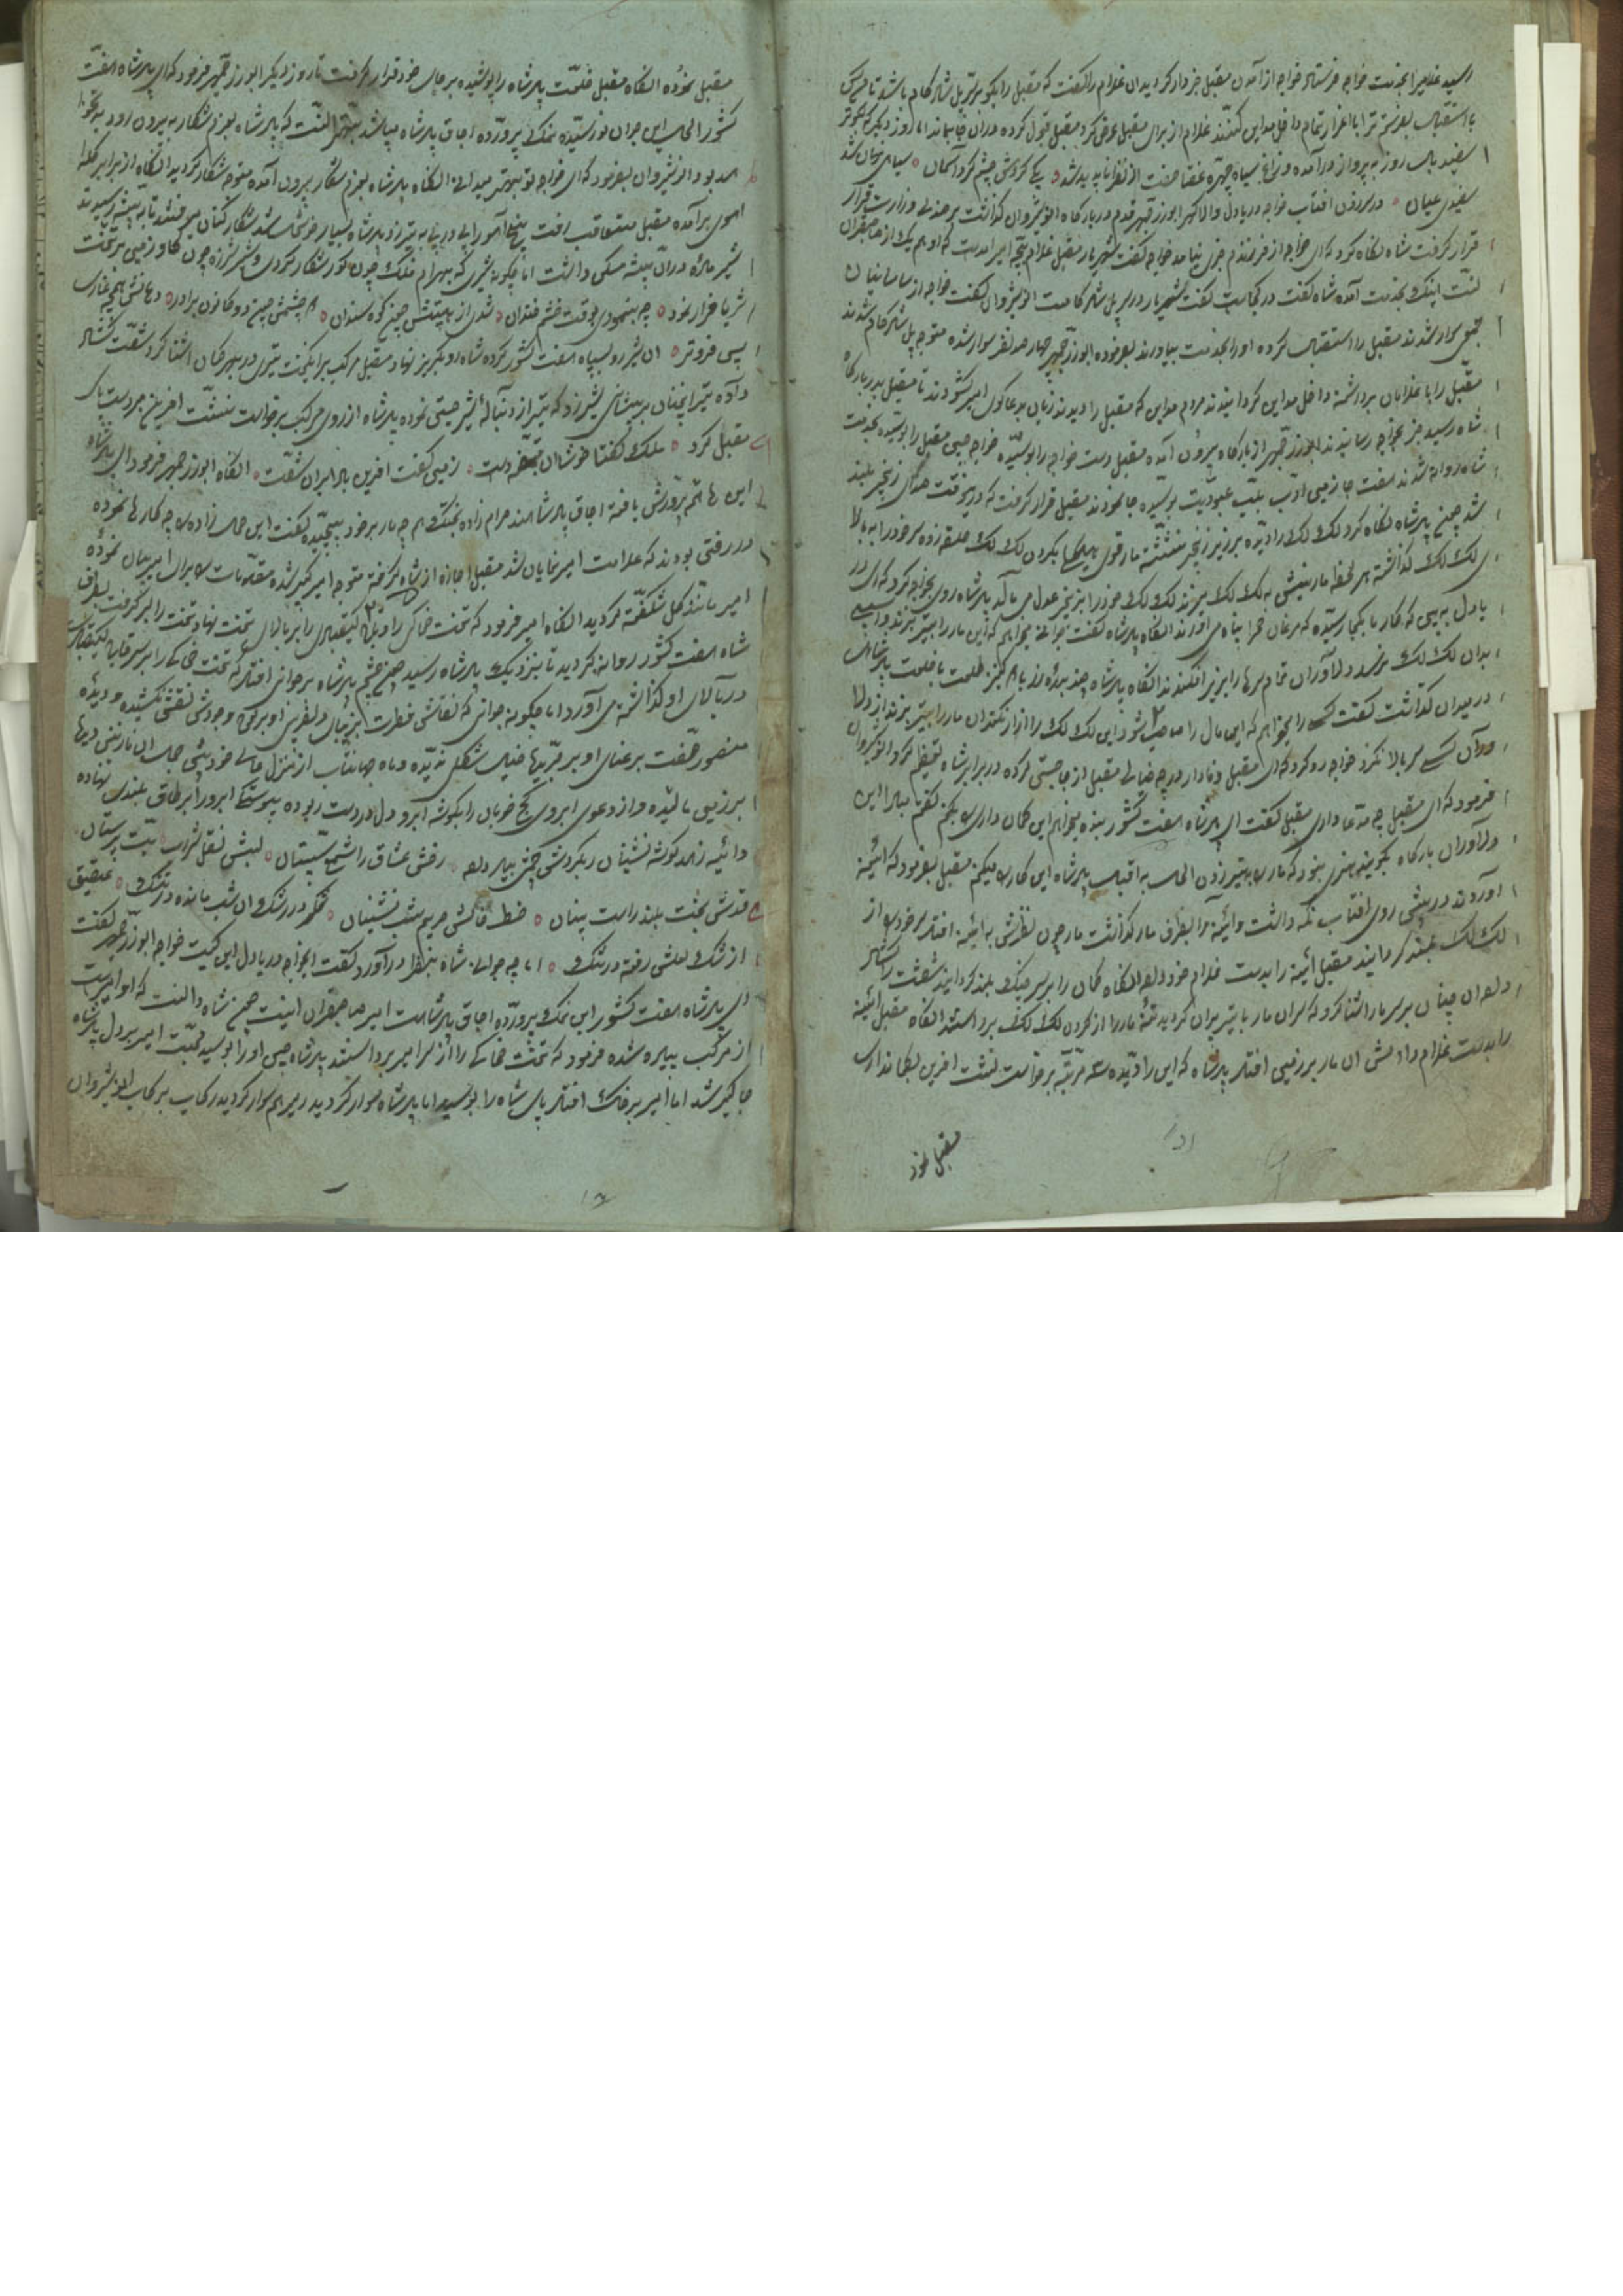 رسید غلامیرا بخدمت خواجه فرستاد خواجه از آمدن مقبل خبردار کردید ان غلام را گفت که مقبل را بگو بر سر پل شاد کام باشد تا من کس
باستقبال بفرستم ترا با اعزاز تمام داخل مداین کنند غلام از برای مقبل عرض کرد مقبل قبول کرده در ان جا بماند اما روز دیگر که کبوتر
سفید بال روز به پرواز در آمده و زاغ سیاه چهره عنقا صفت از نظر ناپدید شد یکی کردش چشم کرد آسمان سیاهی نهان شد
سفیدی عیان در سر زدن افتاب خواجه دریا دل والا کهر ابوزرجمهر قدم در بارکاه انوشیروان کذاشت بر صندلی وزارت قرار
قرار کرفت شاه نگاه کرد که ای خواجه از فرزندم خبری نیامد خواجه گفت شهریار مقبل غلام بچه امیر امدست که او هم یک از صاحبقران
است اینک بخدمت آمده شاه گفت در کجاست گفت شهریار در سر پل شاد کام است انوشیروان گفت خواجه از ساسانیان
جمعی سوار شدند مقبل را استقبال کرده او را بخدمت بیاورند بفرموده ابوزرجمهر چهار صد نفر سوار شده متوجه پل شاد کام شدند
مقبل را با غلامان برداشته داخل مداین کردانیدند مردم مداین که مقبل را دیدند زبان بدعا کوی امیر کشودند تا مقبل بدر بارکاه
شاه رسید خبر بخواجه رسانیدند ابوزرجمهر از بارکاه بیرون آمده مقبل دست خواجه را بوسیده خواجه جبین مقبل را بوسیده بخدمت
شاه روانه شدند هفت جا زمین ادب بلب عبودیت بوسیده جا نمودند مقبل قرار کرفت که در انوقت صدای زنجیر بلند
شد چون پادشاه نگاه کرد لک لک را دیده بر زبر زنجیر نشسته مار قوی هیکلی بکردن لک لک حلقه زده سر خود را به بالا
لک لک کذاشته هر لحظه مار نیشی به لک لک میزند لک لک خود را بزنجیر عدل می مالد پادشاه روی بخواجه کرد که ای در
یادل به بین که کار ما بکجا رسیده که مرغان صحرا پناه می اورند انگاه پادشاه گفت جوانی میخواهم که این مار را به تیر بزند و اسیبی
بدان لک لک نرسد دلاوران تمام سرها را بزیر افکندند انگاه پادشاه چند بدره زر با کنیز طلعت با خلعت پادشاهی
در میدان کذاشت گفت کسی را میخواهم که این مال را صاحب شود این لک لک را از ازار نکند ان مار را به تیر بزند از دلا
وران کسی سر بالا نکرد خواجه رو کرد که ای مقبل وفادار در چه خیالی مقبل از جا جستی کرده در برابر شاه تعظیم کرد انوشیروان
فرمود که ای مقبل چه مدعا داری مقبل گفت ای پادشاه هفت کشور بنده میخواهم این کمان داری را بکنم
دلاوران بارکاه به تیر زدن الحال به اقبال پادشاه این کار را میکنم مقبل بفرمود که ائینه
اوردند در پیش روی افتاب نکه داشت و ائینه را بطرف مار کذاشت مار چون نظرش به ائینه افتاد سر خود را از
لک لک بلند کردانید مقبل ائینه را بدست غلام خود داده انگاه کمان را بر سر چنک بلند کردانید شصت را کشاد
داده ان چنان بر سر مار اشنا کرد که سر ان مار با تیر پران کردید تنه مار را از کردن لک لک برداشتند انگاه مقبل ائینه
را بدست غلام داد نعش ان مار بر زمین افتاد پادشاه که این را دیده سه مرتبه برخواست نشست افرین بکمانداری
مقبل نمود
مقبل نموده انگاه مقبل خلعت پادشاه را پوشیده بر جای خود قرار کرفت تا روز دیگر ابوزرجمهر فرمود که ای پادشاه هفت
کشور الحال این جوان نو رسیده نمک پرورده اجاق پادشاه میباشد بهتر انست که پادشاه بعزم شکار به بیرون رود
امد بود انوشیروان بفرمود که ای خواجه تو بهتر میدانی انگاه پادشاه بعزم شکار بیرون آمده متوجه شکار کردید انگاه از برابر کله
اهوی برآمده مقبل متعاقب رفت پنج آهو را پی در پی به تیر زد پادشاه بسیار خوشحال شد شکار کنان میرفتند تا به بیشه رسیدند
شیر ماده در ان بیشه مسکن داشت اما چکونه شیری که بهرام فلک چون کور شکار کردی و شیر شرزه چون کاو زمین بر تخت
ثریا قرار نمود چه بنمودی بوقت خشم دندان شدی از هیبتش چون کوه سندان دو چشمش چون دو کانون پر اذر دهانش همچو غاری
پس فروتر ان شیر رو بسپاه هفت کشور کرده شاه رو بکریز نهاد مقبل مرکب برانکیخت تیری در بهر کمان اشنا کرد شصت کشاد
داده تیر انچنان بر پیشانی شیر زد که تیر از دنباله شیر جستی نموده پادشاه از روی مرکب برخواست نشست افرین بر دست پاک
مقبل کرد ملک گفتا خوشا ان دست زمین گفت افرین بادا بران شصت انگاه ابوزرجمهر فرمود ای پادشاه
این ها همه پرورش یافته اجاق پادشاه اند حرام زاده بختک هم چه مار بر خود بپیچیده گفت این حلال زاده را چه کارها نموده
در رفتن بودند که علامت امیر نمایان شد مقبل اجازه از شاه کرفته متوجه امیر شده مقدمات را برای امیر بیان نموده
امیر مانند گل شکفته کردید انگاه امیر فرمود که تخت خاکی را و
شاه هفت کشور روانه کردید تا بنزدیک پادشاه رسید چون چشم پادشاه بر جوانی افتاد که تخت خاکی را بر سر
در بالای او کذاشته می آورد اما چکونه جوانی که نقاش فطرت بزیبای دلفریبی او بر لوح وجودش نقش نکشیده و دیده
برعنای او بر قربها خیال شکل ندیده و ماه جهانتاب از منزل عالی خود پی جمال ان نازنین دیدها
بر زمین مالیده و از دعوی ابروی کج خوبان را بگوشه ابرو دل از دست ربوده پیوستگی ابرو را بر طاق بلندی نهاده
رخش عشاق را شمع شبستان لبش نقل شراب بت پرستان
قدش بخت بلند راست بینان خط خالش حریم شب نشینان شکر در رشک ان شب مانده در تنگ عقیق
از رشک لعلش رفته در سنگ اما چه جوانی شاه بنظر در آورد گفت ایخواجه دریا دل این کیست خواجه ابوزرجمهر گفت
ای پادشاه هفت کشور این نمک پرورده اجاق پادشاهست امیر صاحبقران اینست چون شاه دانست که او امیرست
از مرکب پیاده شده فرمود که تخت خاکی را از سر امیر برداشتند پادشاه جبین او را بوسید محبت امیر بر دل پادشاه
جا کیر شد اما امیر بر خاک افتاد پای شاه را بوسید اما پادشاه سوار کردید امیر هم سوار کردید رکاب بر رکاب انوشیروان